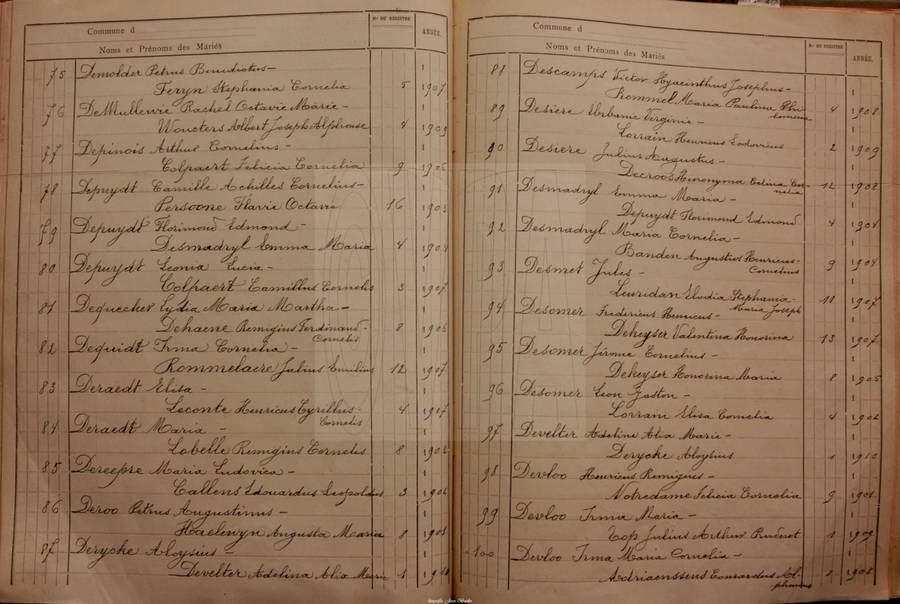 Commune d
Nos DU REGISTRE
ANNÉE.
Noms et Prénoms des Mariés
75 Demolder Petrus Benedictus -
Feryn Stephania Cornelia 5 1907
76 DeMullewie Rachel Octavie Marie -
Woucters Albert Joseph Alphonse 4 1909
77 Depinois Arthur Cornelius -
Colpaert Felicia Cornelia 9 1906
78 Depuydt Camille Achilles Cornelius -
Persoone Flavie Octavie 16 1903
79 Depuydt Florimond Edmond -
Desmadryl Emma Maria 4 1904
80 Depuydt Leonia Lucia -
Colpaert Camillus Cornelis 3 1907
81 Dequecker Lydia Maria Martha -
Dehaene Remigius Ferdinand-
Cornelis 8 1906
82 Dequidt Irma Cornelia -
Rommelaere Julius Emilius 12 1907
83 Deraedt Elisa -
Leconte Henricus Cyrillus-
Cornelis 4 1907
84 Deraedt Maria -
Labelle Remigius Cornelis 8 1902
85 Dereepre Maria Ludovica -
Callens Edouardus Leopoldus 3 1906
86 Deroo Petrus Augustinus -
Haelewyn Augusta Maria 8 1905
87 Derycke Aloysius -
Develter Adelina Alia Marie 1 1910
Commune d
No DU REGISTRE
ANNÉE.
Noms et Prénoms des Mariés
88 Descamps Victor Hyacinthus Josephus -
Rommel Maria Paulina Philomena 4 1908
89 Desiere Urbanie Virginie -
Lorrain Henricus Lodovicus 2 1909
90 Desiere Julius Augustus -
Decroos Hieronyma Cornelia 12 1908
91 Desmadryl Emma Maria -
Depuydt Florimond Edmond 4 1904
92 Desmadryl Maria Cornelia -
Banden Augustios Henricus-
Cornelius 9 1904
93 Desmet Jules -
Leuridan Elodia Stephania-
Maria Joseph 11 1907
94 Desomer Fredericus Henricus -
Deheyser Valentina Honorina 13 1907
95 Desomer Jérome Cornelius -
Deheyser Honorina Maria 8 1905
96 Desomer Leon Gaston -
Lorrain Elisa Cornelia 4 1906
97 Develter Adeline Alia Marie -
Derycke Aloysius 1 1910
98 Devloo Henricus Remigius -
Notredame Felicia Cornelia 9 1901
99 Devloo Irma Maria -
Cop Julius Arthur Prudent 1 1909
100 Devloo Irma Maria Cornelia -
Adriaenssens Conrardus Alphonsus 2 1905